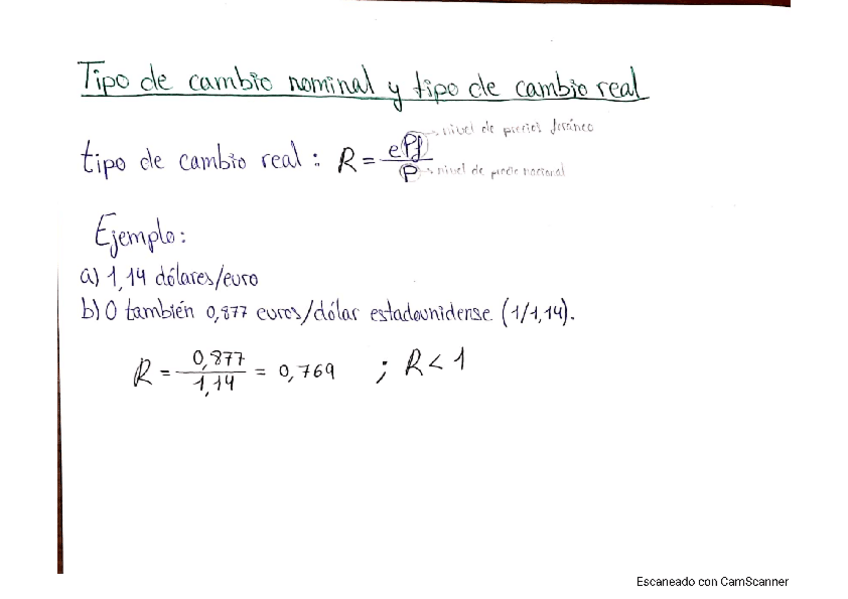 Tipo de cambio nominal y tipo de cambio real
tipo de cambio real : R = ePf / P
nivel de precios foráneo
nivel de precio nacional
Ejemplo:
a) 1,14 dólares/euro
b) O también 0,877 euros/dólar estadounidense (1/1,14).
R = 0,877 / 1,14 = 0,769 ; R < 1
Escaneado con CamScanner